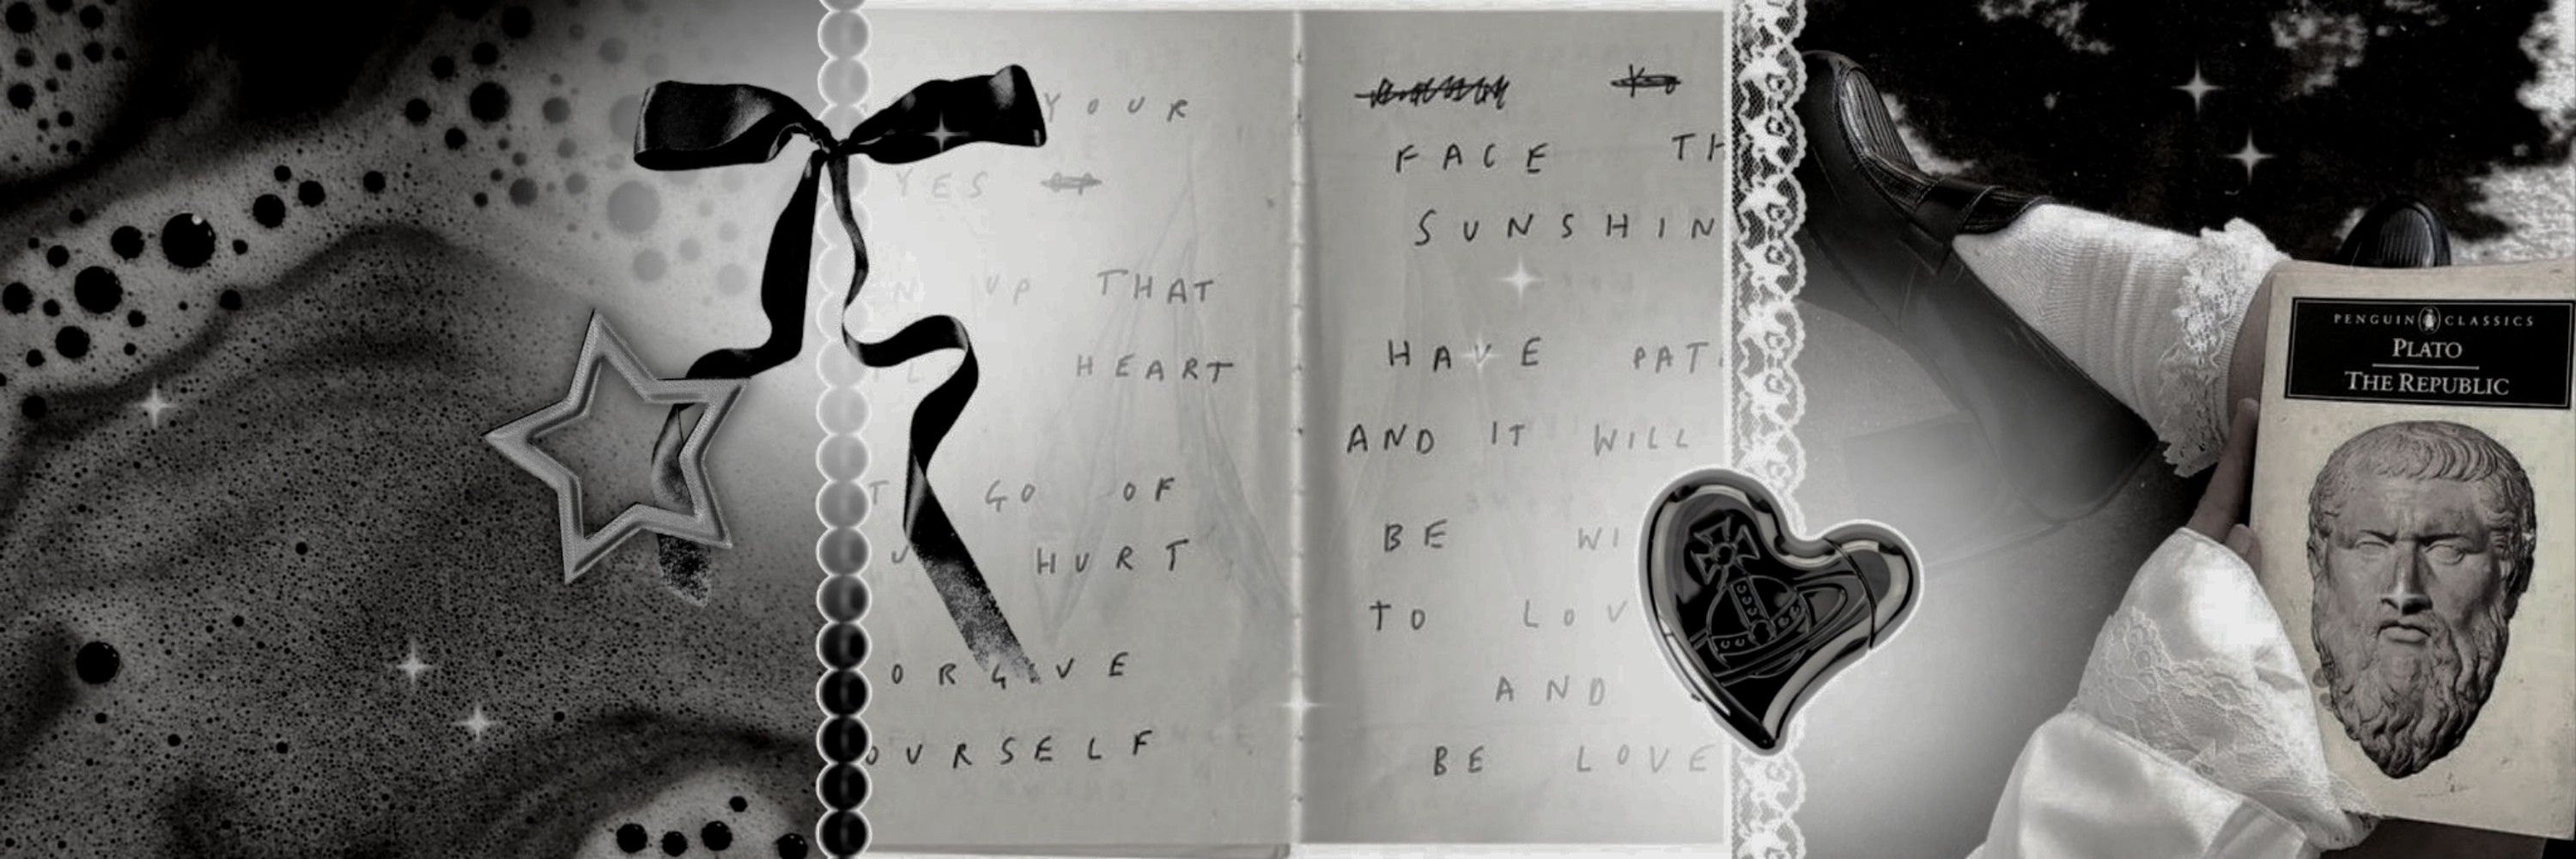 YOUR
YES
UP THAT
HEART
GO OF
HURT
ORGIVE
OURSELF
FACE TH
SUNSHIN
HAVE PAT
AND IT WILL
BE WI
TO LOV
AND
BE LOVE
PENGUIN CLASSICS
PLATO
THE REPUBLIC